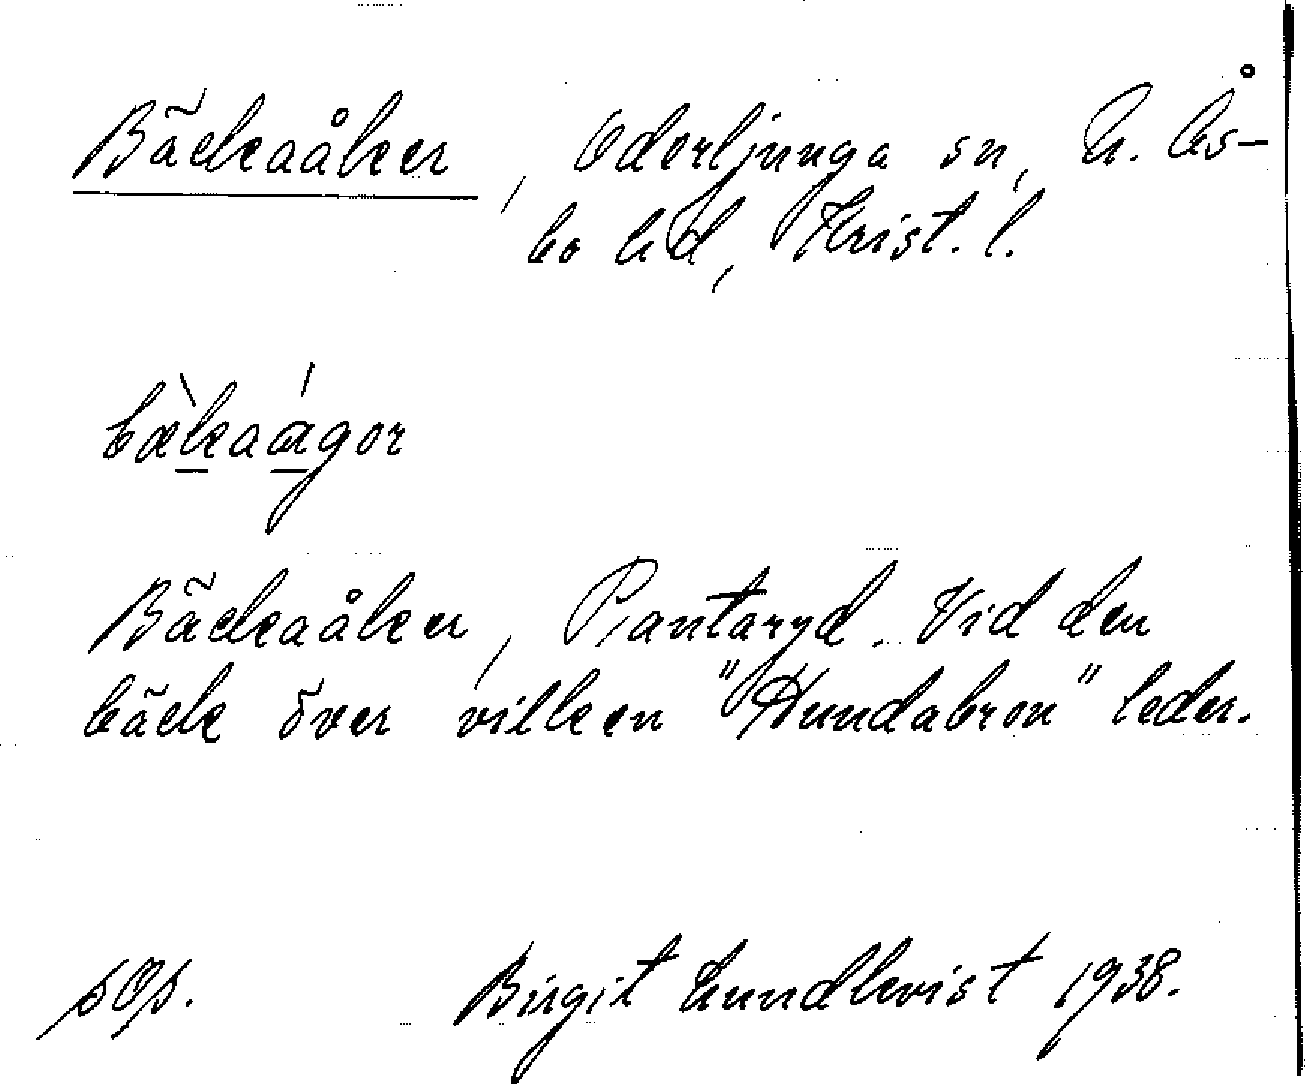 Bäckaåker, Oderljunga sn, N. Ås-
bo hd, Krist. l.
bækaågor
Bäckaåker, Plantaryd. Vid den
bäck över vilken "Hundabron" leder.
sOp. Birgit Lundkvist 1938.